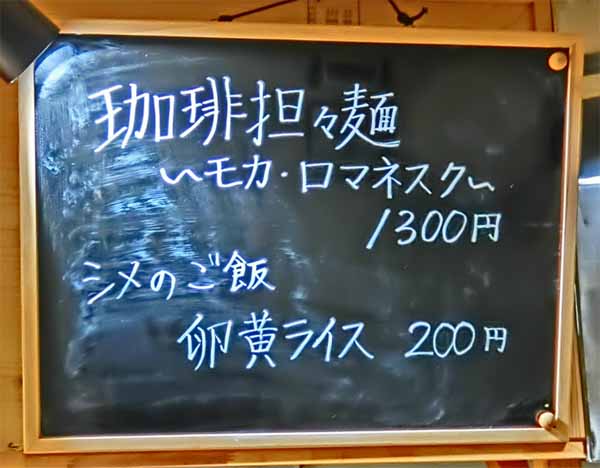 珈琲担々麺
〜モカ・ロマネスク〜
1300円
シメのご飯
卵黄ライス 200円